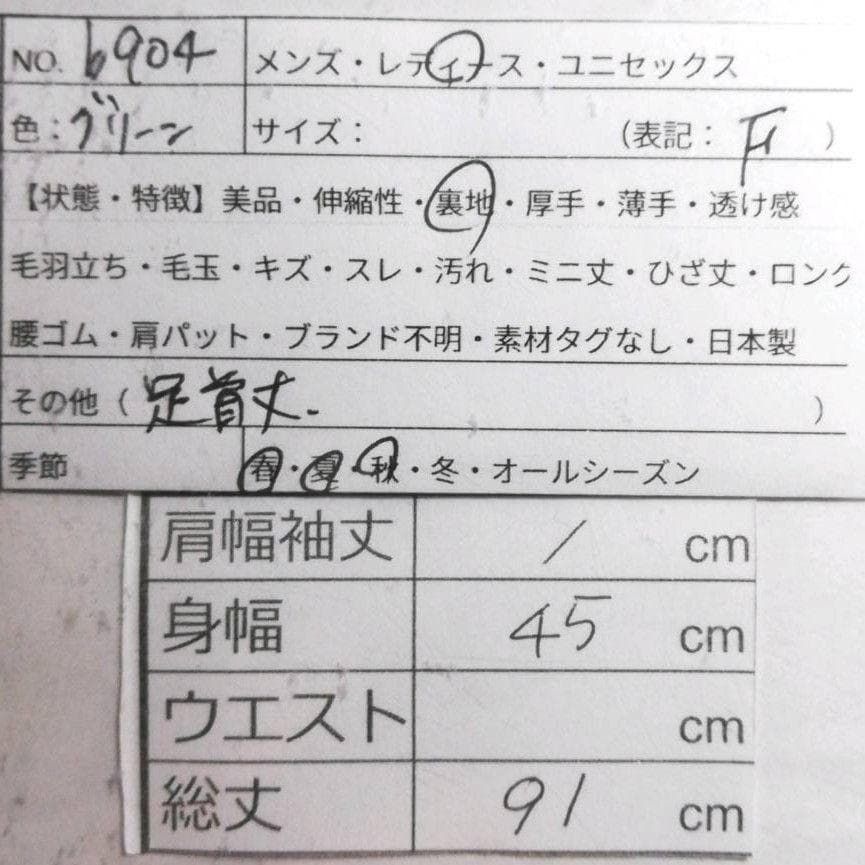 NO. b904 メンズ・レディース・ユニセックス
色：グリーン サイズ： （表記： F ）
【状態・特徴】美品・伸縮性・裏地・厚手・薄手・透け感
毛羽立ち・毛玉・キズ・スレ・汚れ・ミニ丈・ひざ丈・ロング
腰ゴム・肩パット・ブランド不明・素材タグなし・日本製
その他（ 足首丈. ）
季節 春・夏・秋・冬・オールシーズン
肩幅袖丈 / cm
身幅 45 cm
ウエスト cm
総丈 91 cm